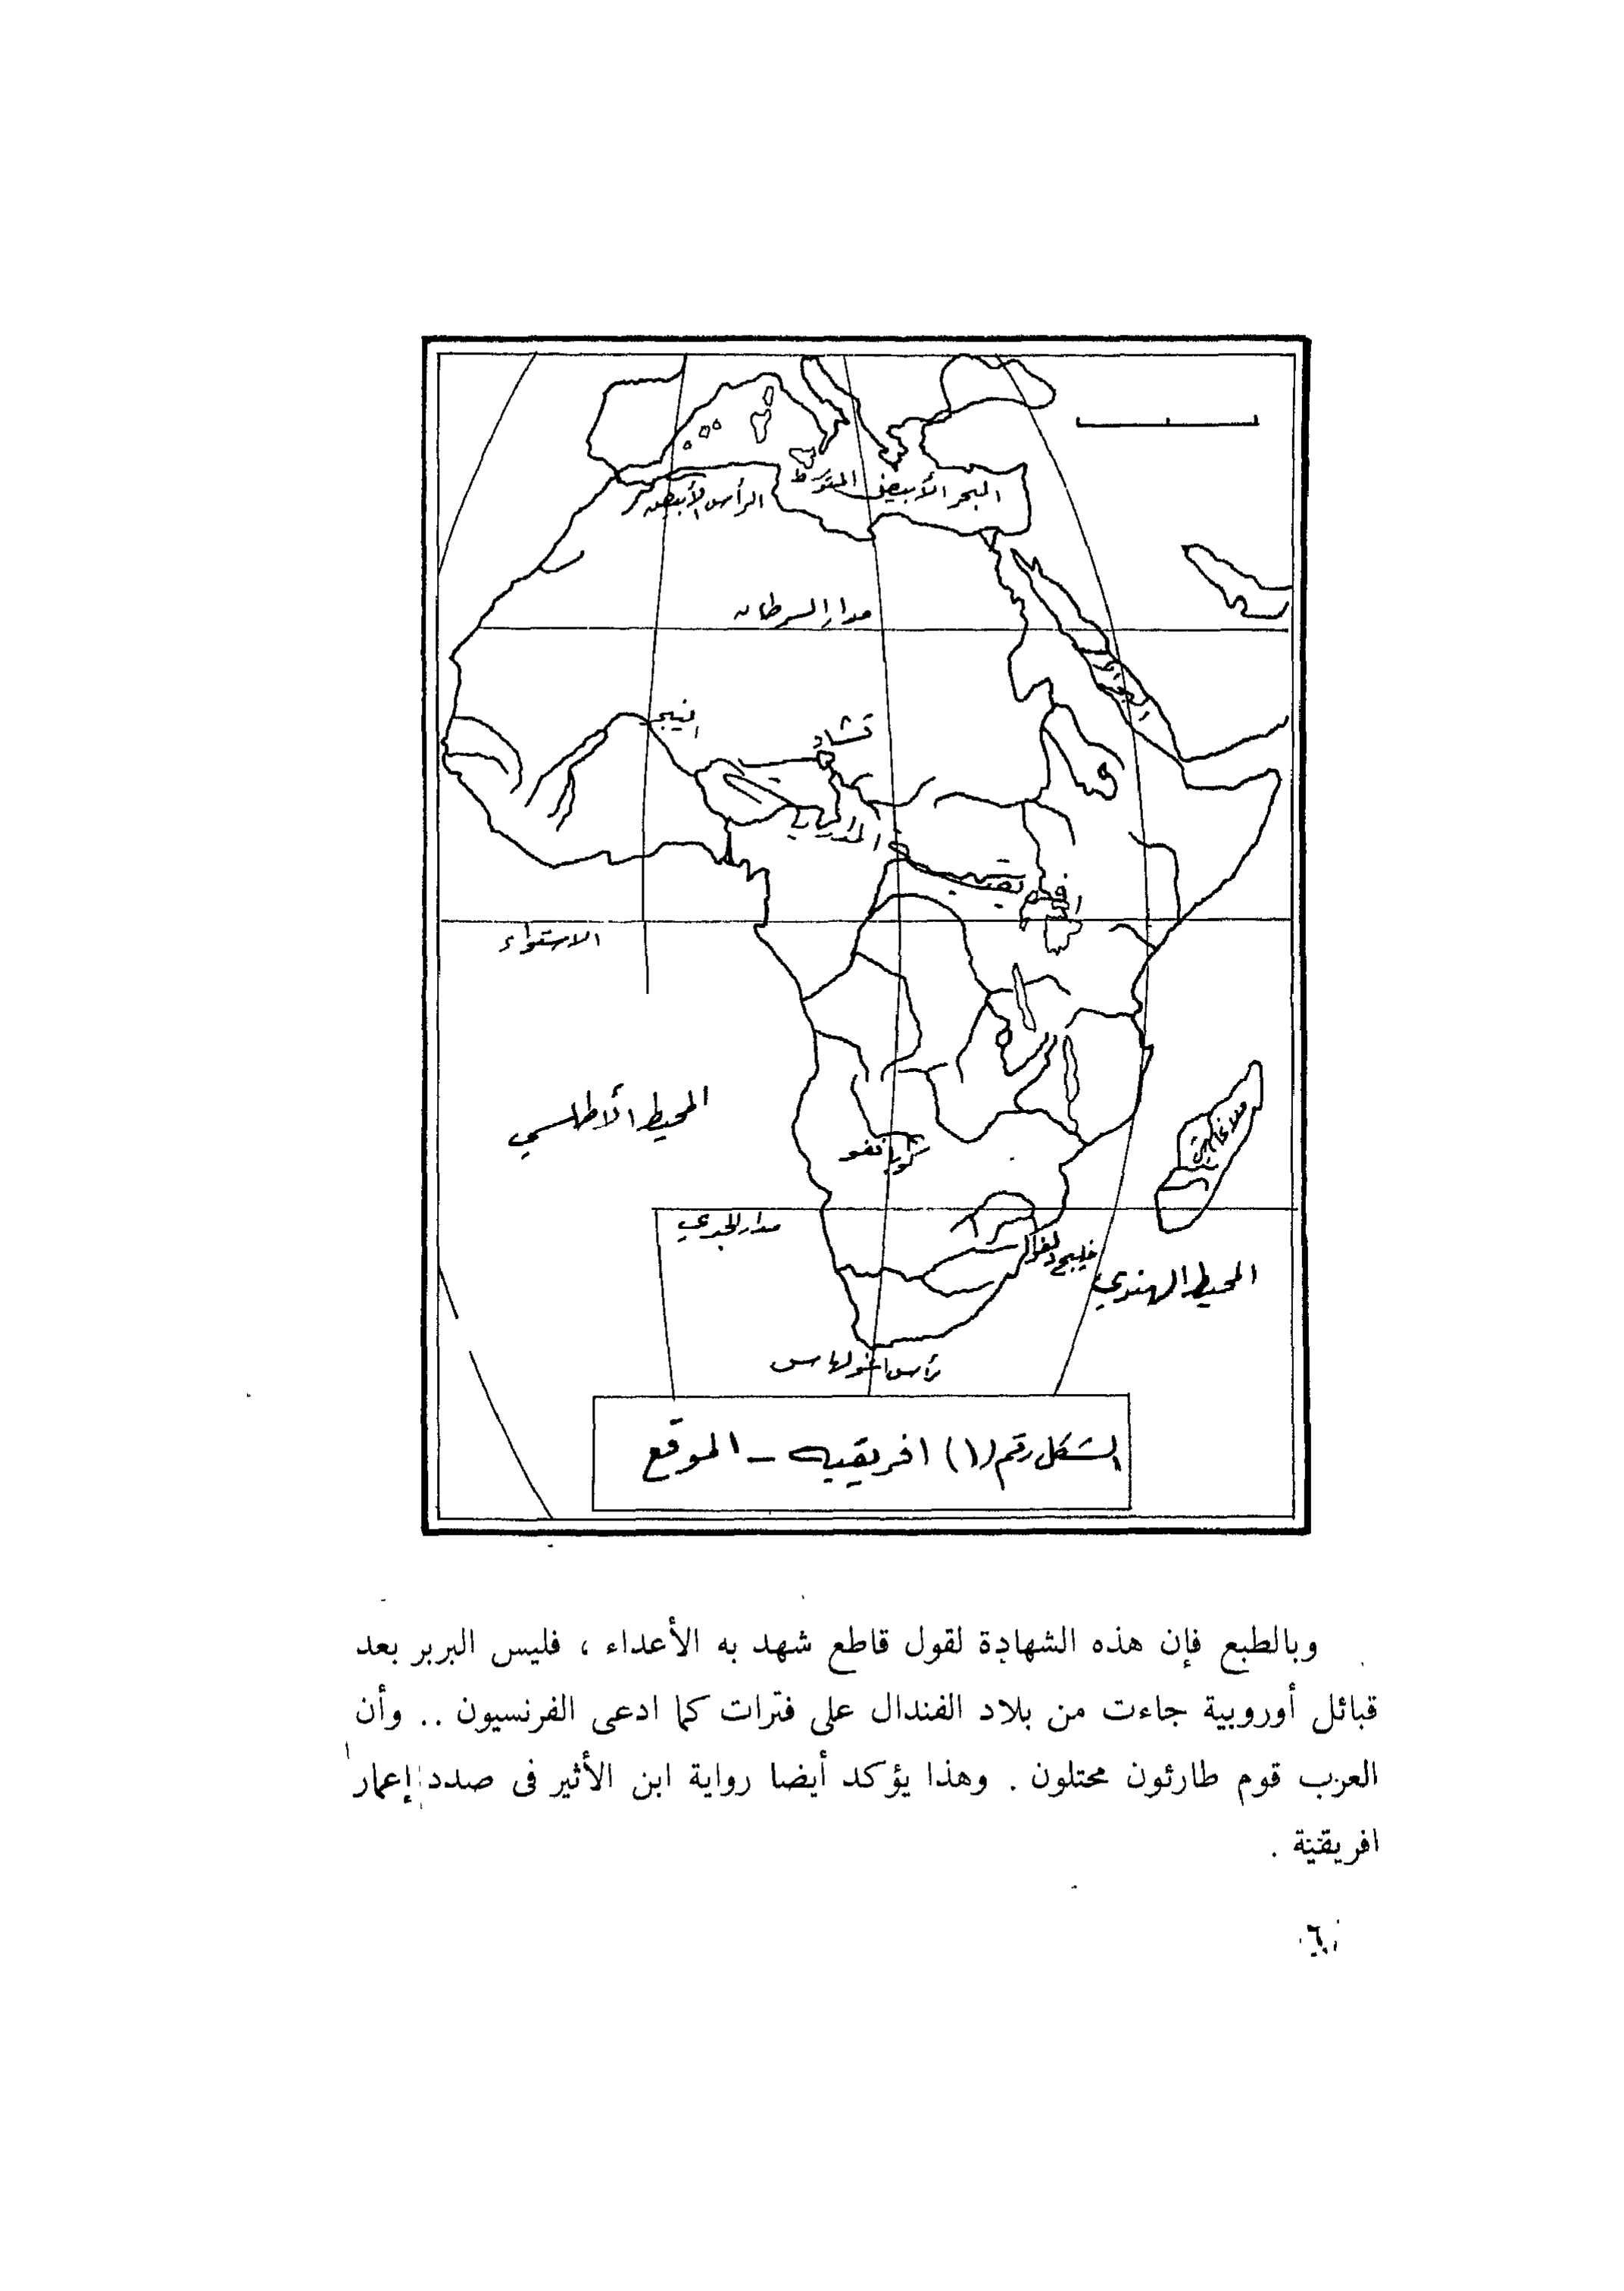 البحر الأبيض المتوسط
الرأس الأبيض
مدار السرطان
النيجر
تشاد
الاستواء
المحيط الأطلسي
مدار الجدي
المحيط الهندي
رأس اغولهاس
الشكل رقم (١) افريقيه - الموقع
وبالطبع فإن هذه الشهادة لقول قاطع شهد به الأعداء ، فليس البربر بعد
قبائل أوروبية جاءت من بلاد الفندال على فترات كما ادعى الفرنسيون .. وأن
العرب قوم طارئون محتلون . وهذا يؤكد أيضا رواية ابن الأثير فى صدد إعمار
افريقية .
٦